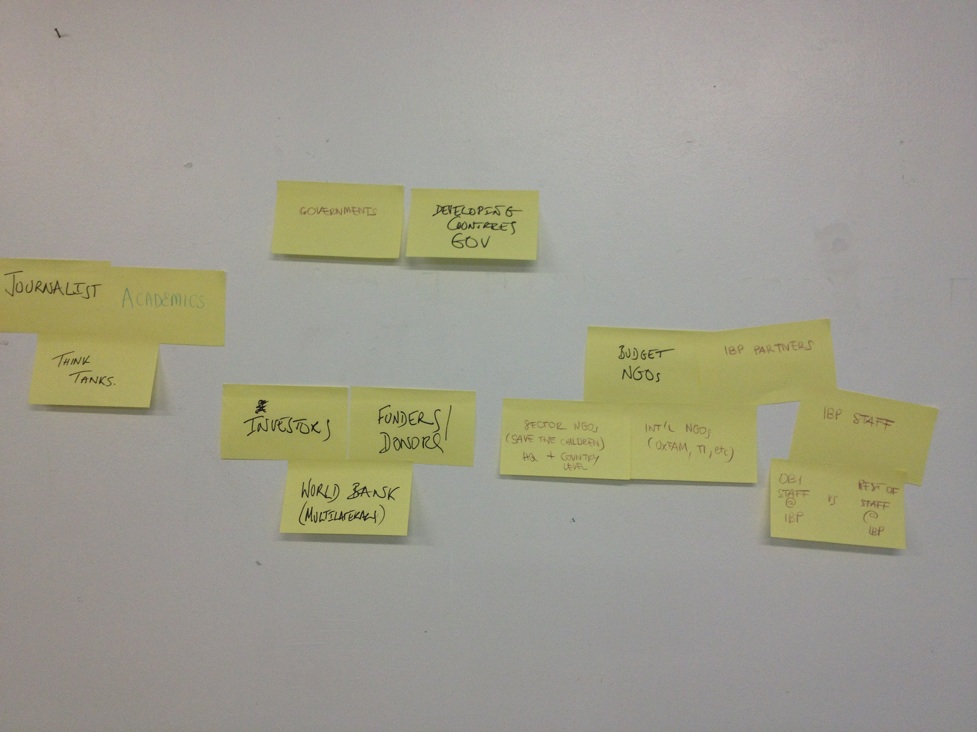 GOVERNMENTS
DEVELOPING
COUNTRIES
GOV
JOURNALIST
ACADEMICS
THINK
TANKS.
INVESTORS
FUNDERS/
DONORS
WORLD BANK
(MULTILATERALS)
BUDGET
NGOs
IBP PARTNERS
SECTOR NGOs
(SAVE THE CHILDREN)
HQ + COUNTRY
LEVEL
INT'L NGOs
(OXFAM, TI, etc)
IBP STAFF
OBI
STAFF
@
IBP
vs
REST OF
STAFF
@
IBP